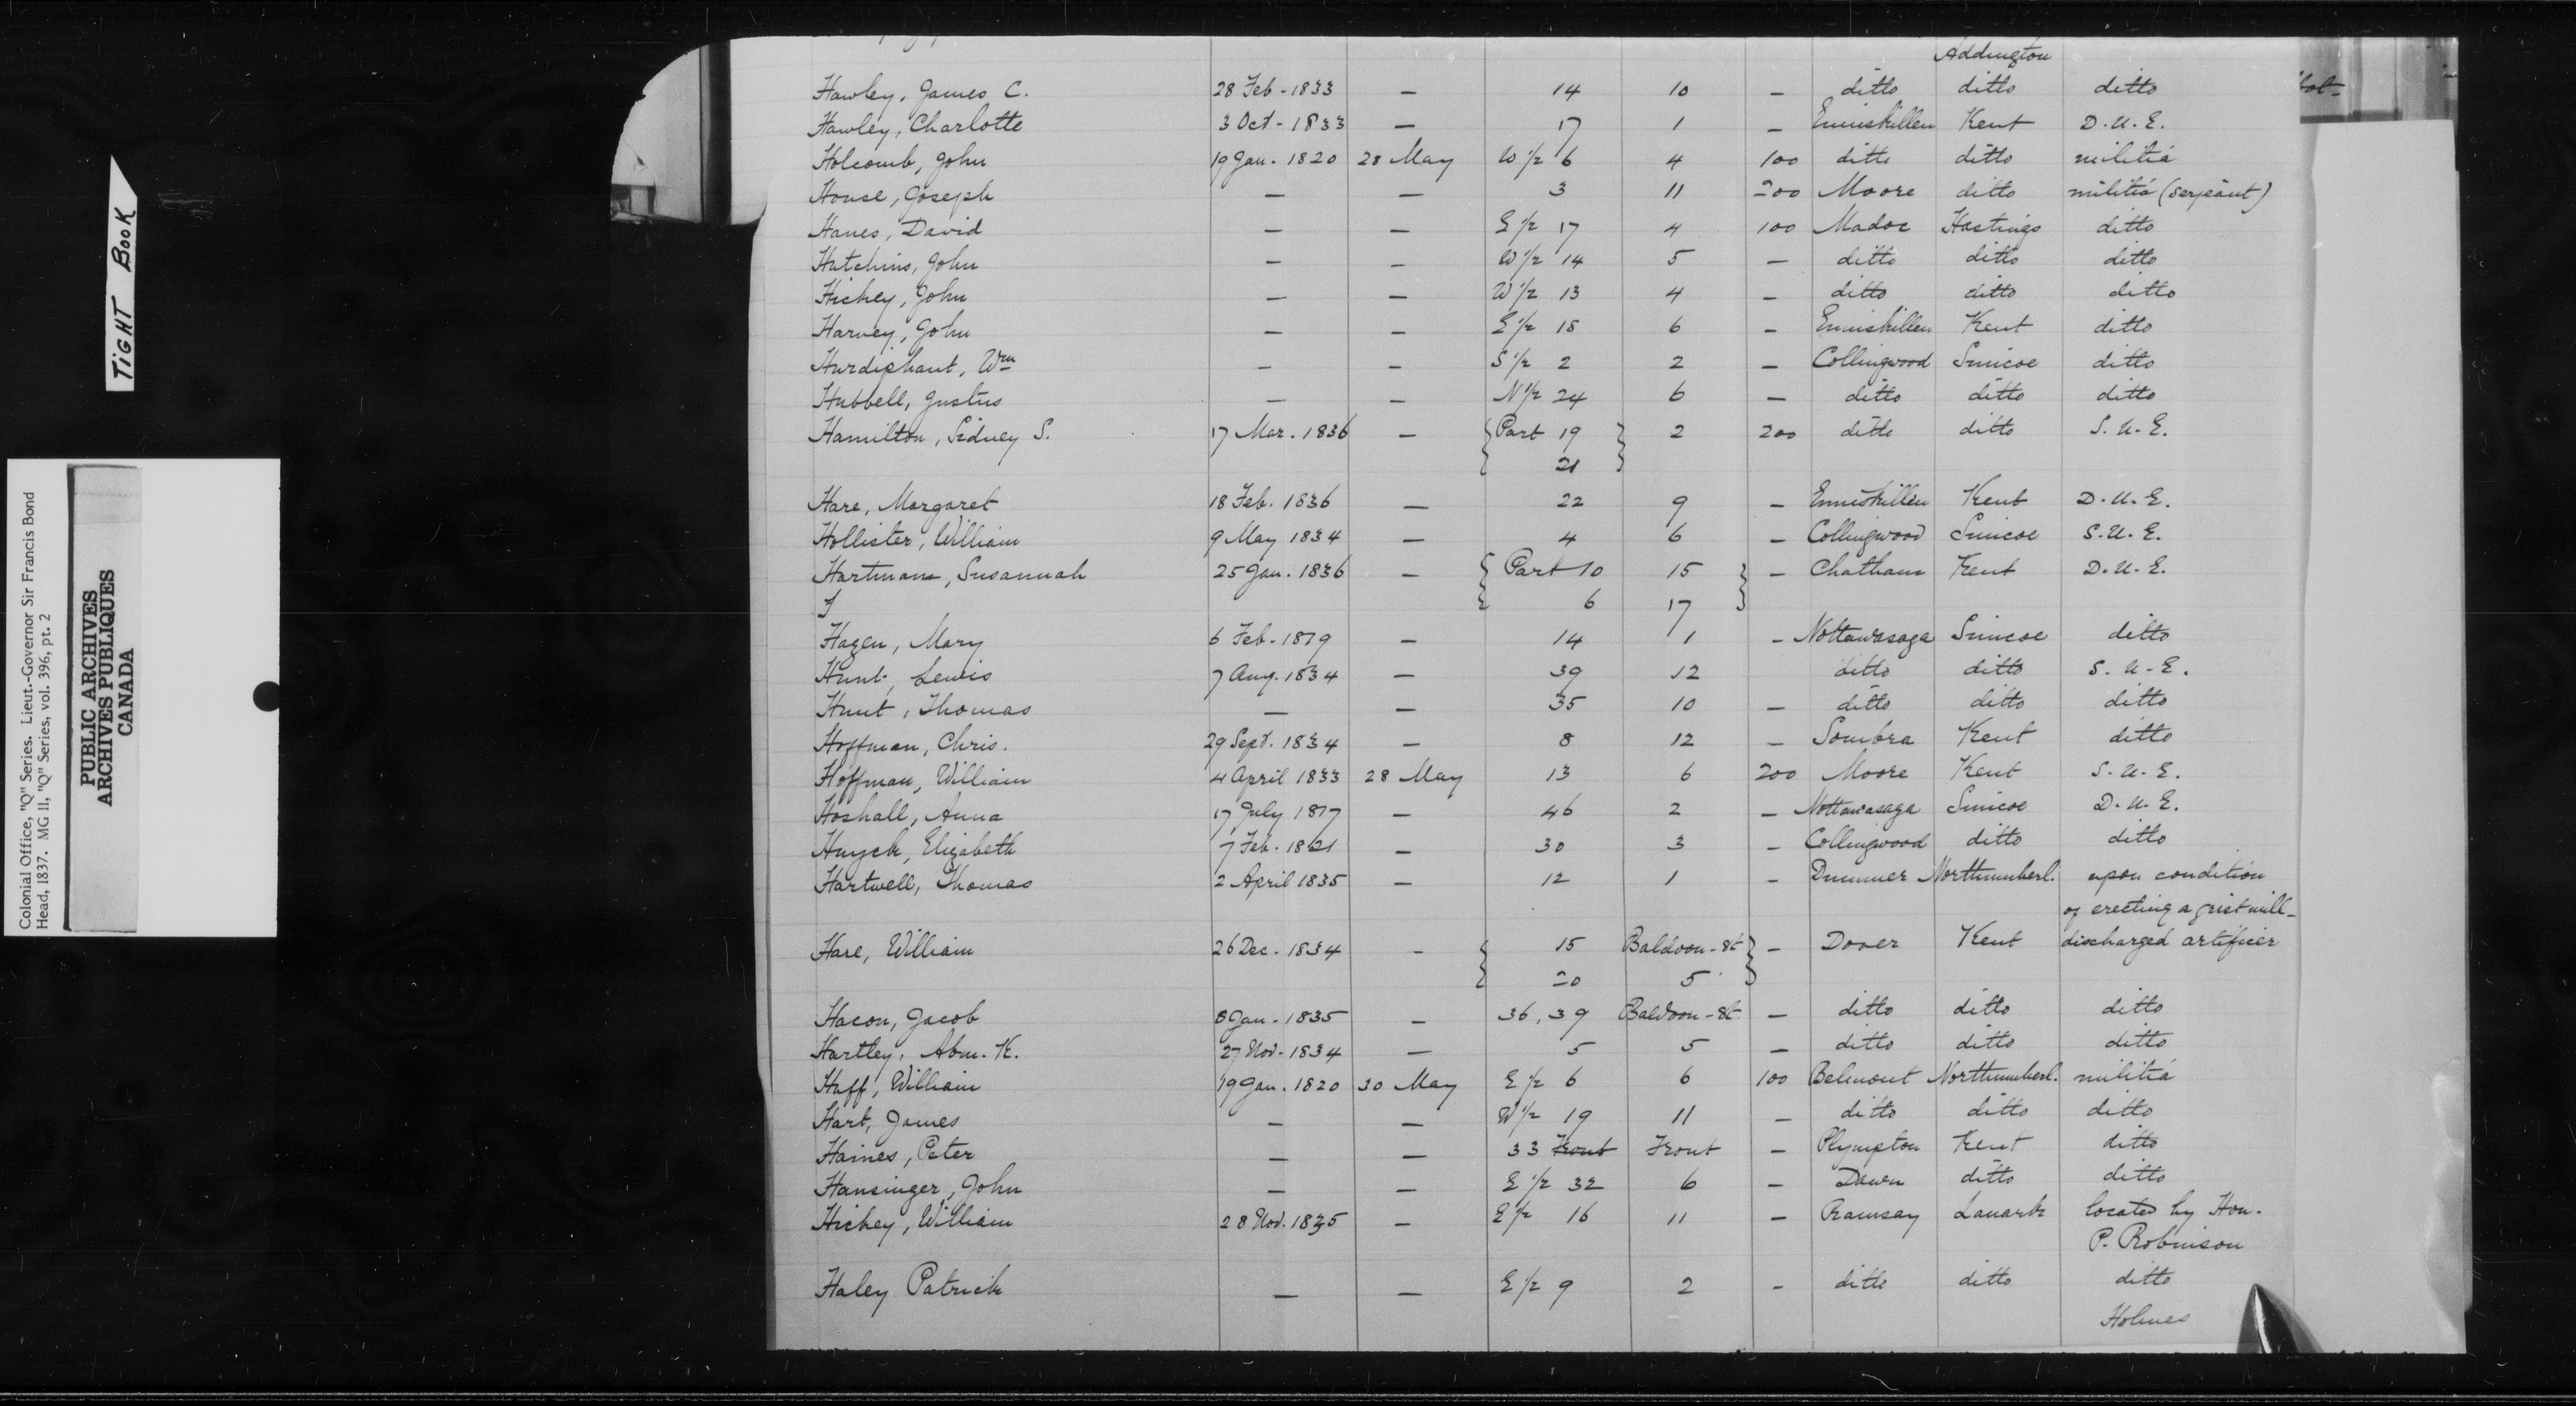 Addington
Hawley, James C. 28 Feb - 1833 — 14 10 — ditto ditto ditto
Hawley, Charlotte 3 Oct - 1833 — 17 1 — Enniskillen Kent D. U. E.
Holcomb, John 19 Jan. 1820 28 May W 1/2 6 4 100 ditto ditto militia
House, Joseph — — 3 11 200 Moore ditto militia (serjeant)
Hanes, David — — E 1/2 17 4 100 Madoc Hastings ditto
Hutchins, John — — W 1/2 14 5 — ditto ditto ditto
Hickey, John — — W 1/2 13 4 — ditto ditto ditto
Harvey, John — — E 1/2 18 6 — Enniskillen Kent ditto
Hurdiphant, Wm — — S 1/2 2 2 — Collingwood Simcoe ditto
Hubbell, Justus — — N 1/2 24 6 — ditto ditto ditto
Hamilton, Sidney S. 17 Mar. 1836 — { Part 19 } 2 200 ditto ditto S. U. E.
21
Hare, Margaret 18 Feb. 1836 — 22 9 — Enniskillen Kent D. U. E.
Hollister, William 9 May 1834 — 4 6 — Collingwood Simcoe S. U. E.
Hartman, Susannah 25 Jan. 1836 — { Part 10 15 } — Chatham Kent D. U. E.
6 17
Hagen, Mary 6 Feb - 1819 — 14 1 — Nottawasaga Simcoe ditto
Hunt, Lewis 7 Aug. 1834 — 39 12 ditto ditto S. U. E.
Hunt, Thomas — — 35 10 — ditto ditto ditto
Hoffman, Chris. 29 Sept. 1834 — 8 12 — Sombra Kent ditto
Hoffman, William 4 April 1833 28 May 13 6 200 Moore Kent S. U. E.
Hoshall, Anna 17 July 1817 — 46 2 — Nottawasaga Simcoe D. U. E.
Huyck, Elizabeth 7 Feb. 1821 — 30 3 — Collingwood ditto ditto
Hartwell, Thomas 2 April 1835 — 12 1 — Dummer Northumberl. upon condition
of erecting a grist mill -
Hare, William 26 Dec. 1834 — { 15 Baldoon - St } — Dover Kent discharged artificer
20 5
Hacon, Jacob 8 Jan - 1835 — 36, 39 Baldoon - St — ditto ditto ditto
Hartley, Abm. K. 27 Nov. 1834 — 5 5 — ditto ditto ditto
Huff, William 19 Jan. 1820 30 May E 1/2 6 6 100 Belmont Northumberl. militia
Hart, James — — W 1/2 19 11 — ditto ditto ditto
Haines, Peter — — 33 Front Front — Plympton Kent ditto
Hansinger, John — — E 1/2 32 6 — Dawn ditto ditto
Hickey, William 28 Nov. 1835 — E 1/2 16 11 — Ramsay Lanark located by Hon.
P. Robinson
Haley Patrick — — E 1/2 9 2 — ditto ditto ditto
Holmes
TIGHT BOOK
Colonial Office, "Q" Series. Lieut.-Governor Sir Francis Bond
Head, 1837. MG 11, "Q" Series, vol. 396, pt. 2
PUBLIC ARCHIVES
ARCHIVES PUBLIQUES
CANADA